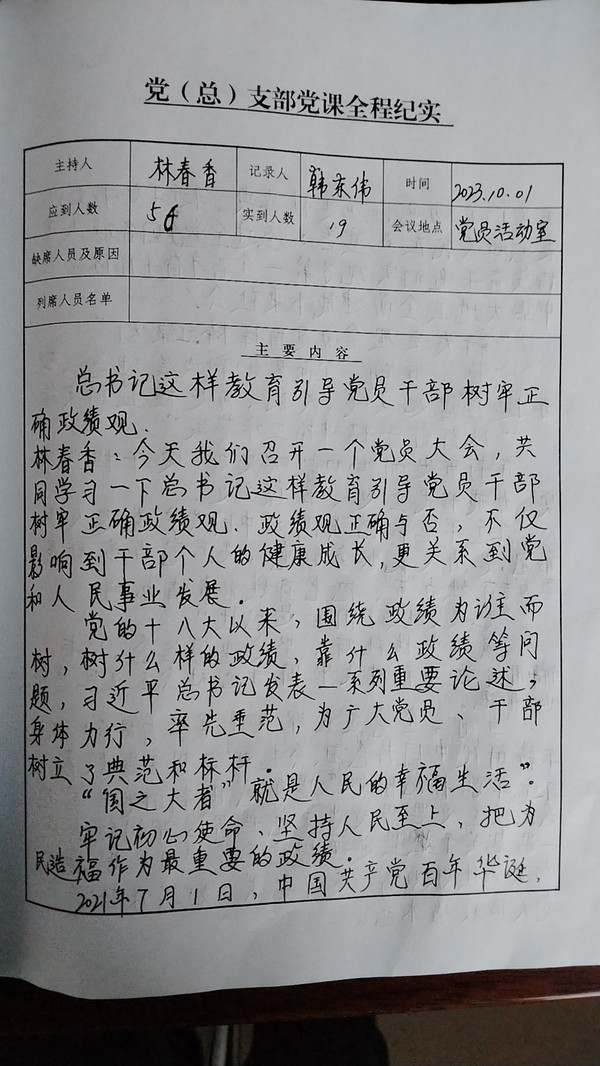 党（总）支部党课全程纪实
主持人 林春香 记录人 韩东伟 时间 2023.10.01
应到人数 56 实到人数 19 会议地点 党员活动室
缺席人员及原因
列席人员名单
主要内容
总书记这样教育引导党员干部树牢正
确政绩观.
林春香：今天我们召开一个党员大会，共
同学习一下总书记这样教育引导党员干部
树牢正确政绩观.政绩观正确与否，不仅
影响到干部个人的健康成长，更关系到党
和人民事业发展.
党的十八大以来，围绕政绩为谁而
树，树什么样的政绩，靠什么政绩等问
题，习近平总书记发表一系列重要论述；
身体力行，率先垂范，为广大党员、干部
树立了典范和标杆.
“国之大者”就是人民的幸福生活”.
牢记初心使命、坚持人民至上，把为
民造福作为最重要的政绩.
2021年7月1日，中国共产党百年华诞，